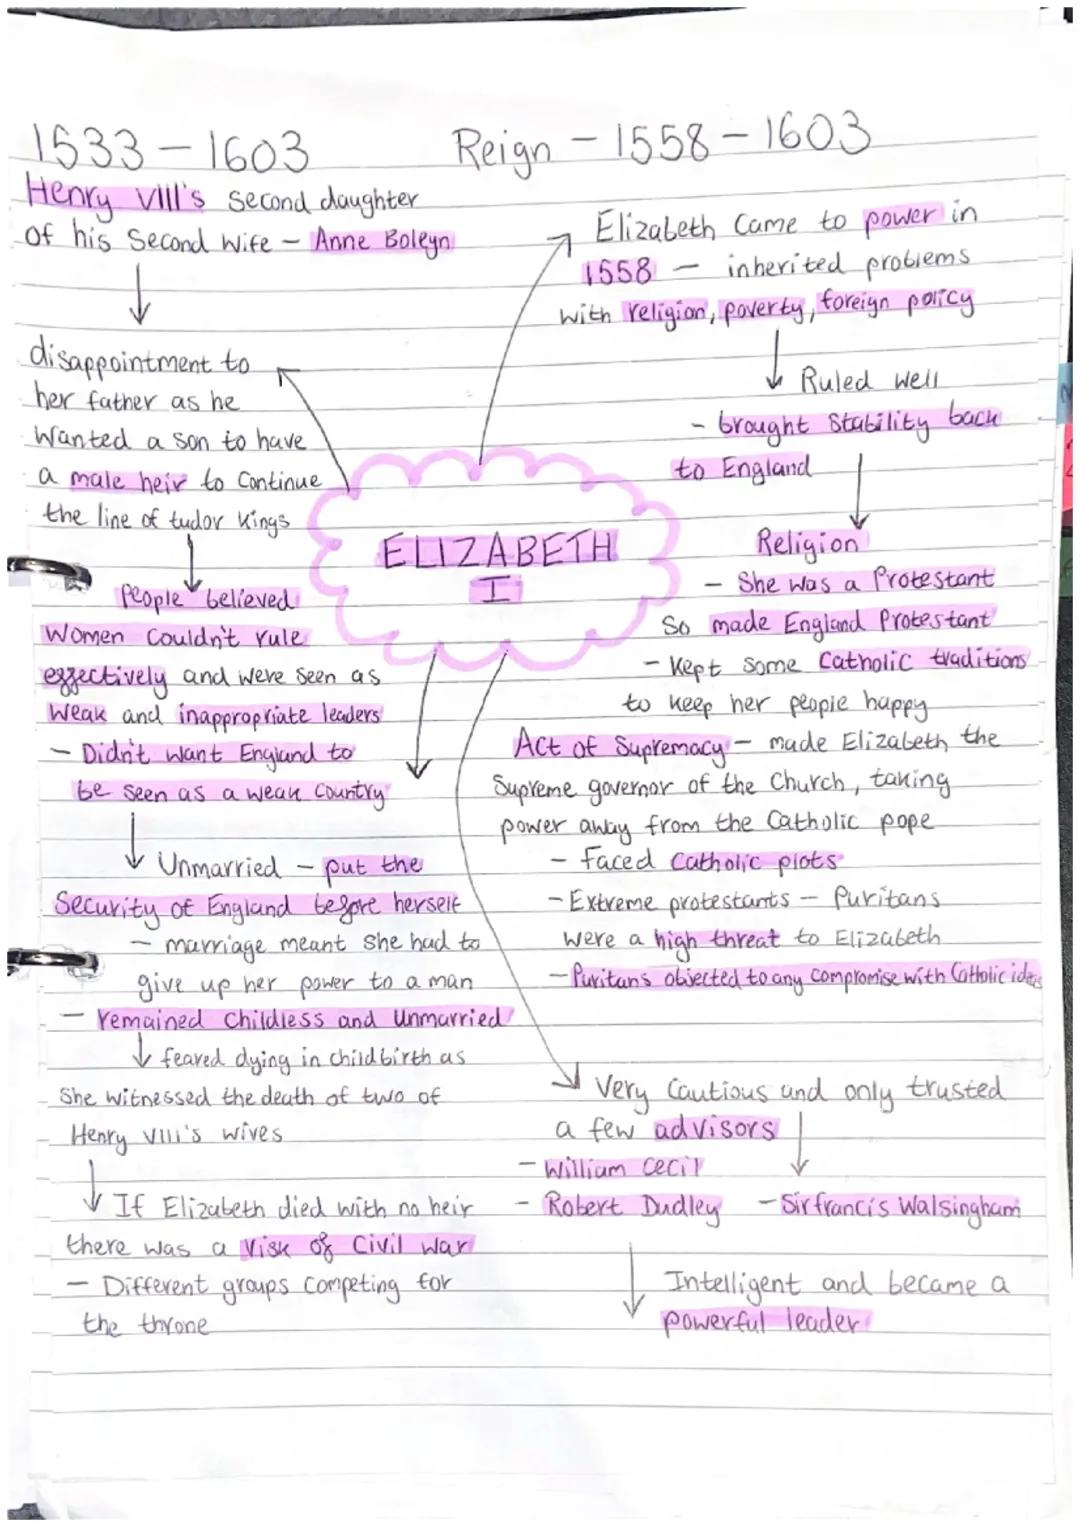 1533 - 1603
Reign - 1558 - 1603
Henry VIII's second daughter
of his second wife - Anne Boleyn
disappointment to
her father as he
wanted a son to have
a male heir to continue
the line of tudor kings
People believed
women couldn't rule
effectively and were seen as
weak and inappropriate leaders
- Didn't want England to
be seen as a weak country
Unmarried - put the
security of England before herself
- marriage meant she had to
give up her power to a man
- remained childless and unmarried
feared dying in childbirth as
she witnessed the death of two of
Henry VIII's wives
If Elizabeth died with no heir
there was a risk of civil war
- Different groups competing for
the throne
ELIZABETH
I
Elizabeth came to power in
1558 - inherited problems
with religion, poverty, foreign policy
Ruled well
- brought stability back
to England
Religion
- She was a Protestant
so made England Protestant
- Kept some Catholic traditions
to keep her people happy
Act of Supremacy - made Elizabeth the
Supreme governor of the Church, taking
power away from the Catholic pope
- Faced Catholic plots
- Extreme protestants - Puritans
were a high threat to Elizabeth
- Puritans objected to any compromise with Catholic ideas
Very cautious and only trusted
a few advisors
- William Cecil
- Robert Dudley - Sir francis Walsingham
Intelligent and became a
powerful leader